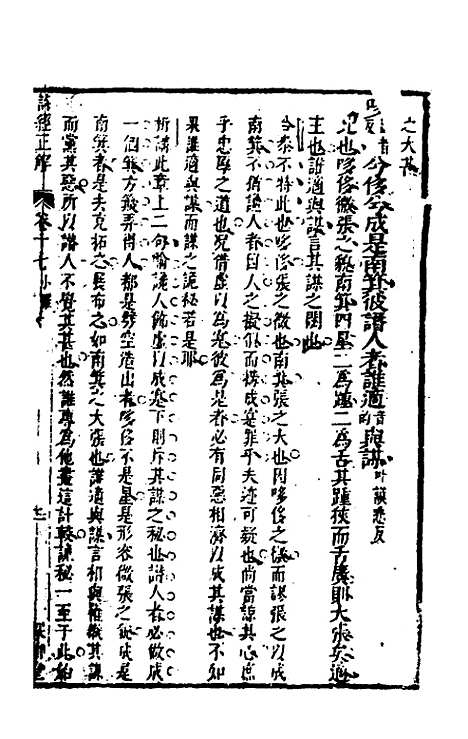 之大甚
哆兮侈兮成是南箕彼譖人者誰適與謀
比也哆侈微張之貌南箕四星二為踵二為舌其踵狹而舌廣則大張矣適
主也誰適與謀言其謀之閟也
合參不特此也哆侈張之微也南箕張之大也因哆侈之而謀張之以成
南箕不猶譖人者因人之疑似而構成罪乎夫迹可疑也尚當諒其心庶
乎忠厚之道也况借虛以為是彼為是者必有同惡相濟以成其謀也不知
果誰適與謀而謀之詭秘若是耶
析講此章上二句喻譖人飾虛以成下則斥其謀之秘也譖人者必做成
一個箕方能弄得人都是劈空造出者哆侈不是星是形容微張之貌成是
南箕者是夫克拓之展布之如南箕之大張也誰適與謀言相與維緻其謀
而黨其惡所以譖人不覺其甚也然誰專為他畫這計較謀秘一至于此始
詩經正解
卷十七